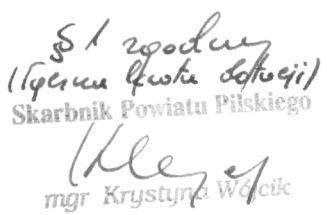 § 1 zgodny
(łączna kwota dotacji)
Skarbnik Powiatu Pilskiego
mgr Krystyna Wójcik